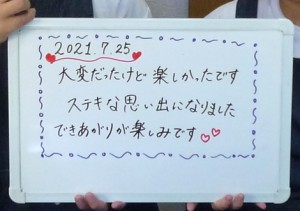 2021.7.25
大変だったけど楽しかったです
ステキな思い出になりました
できあがりが楽しみです